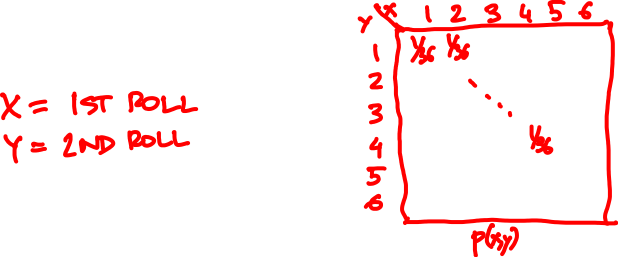 X = 1ST ROLL
Y = 2ND ROLL
Y X 1 2 3 4 5 6
1 1/36 1/36
2
3
4 1/36
5
6
p(x,y)